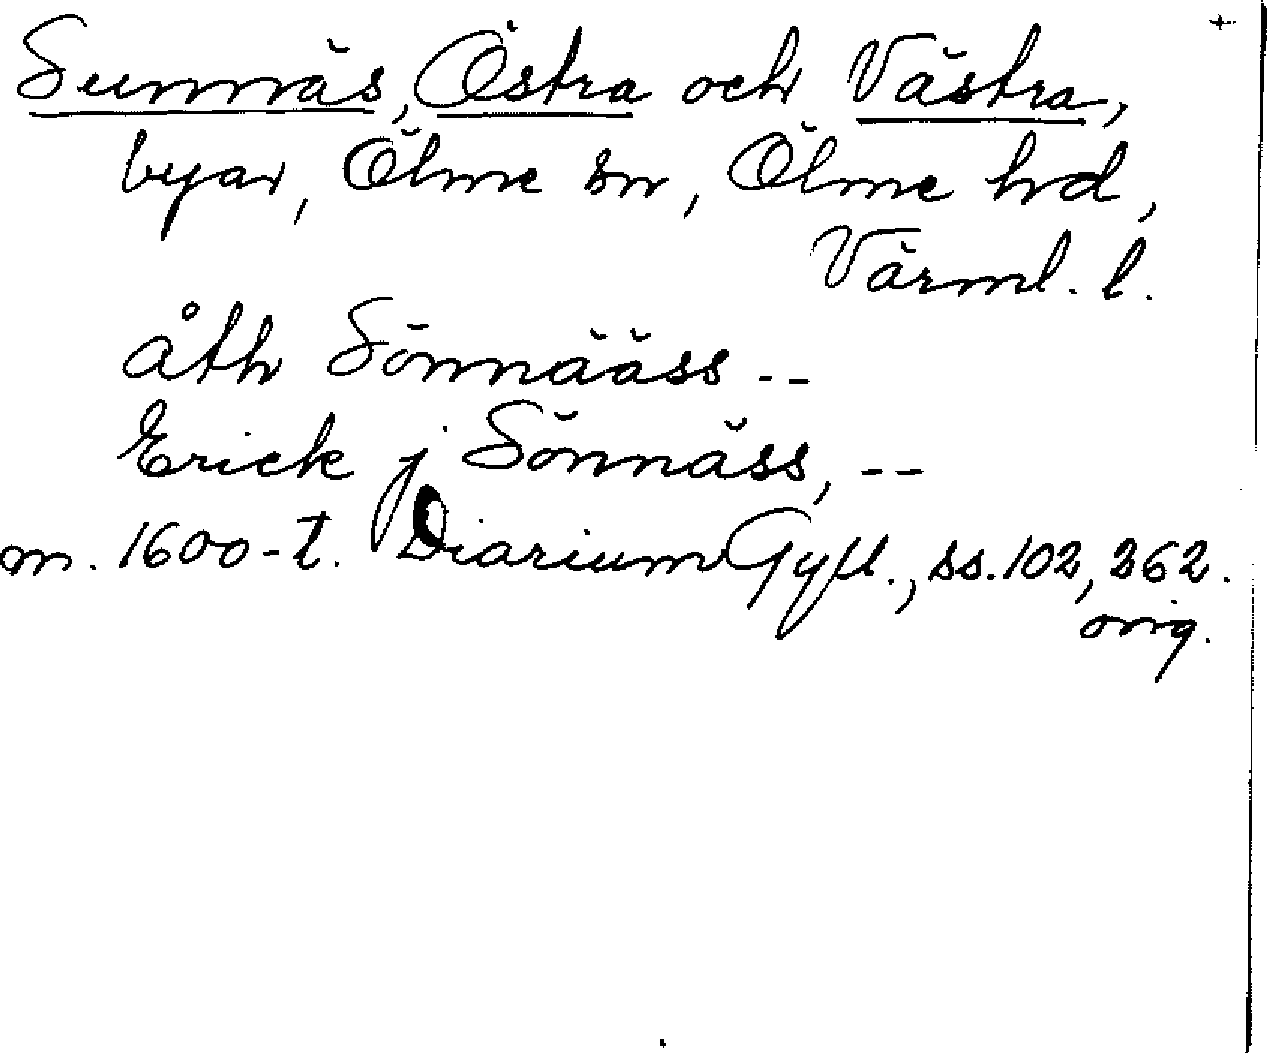 +
Sunnäs, Östra och Västra,
byar, Ölme sn, Ölme hd,
Värml. l.
åth Sönnääss --
Erick j Sönnäss, --
m. 1600-t. Diarium Gyll., ss. 102, 262.
orig.